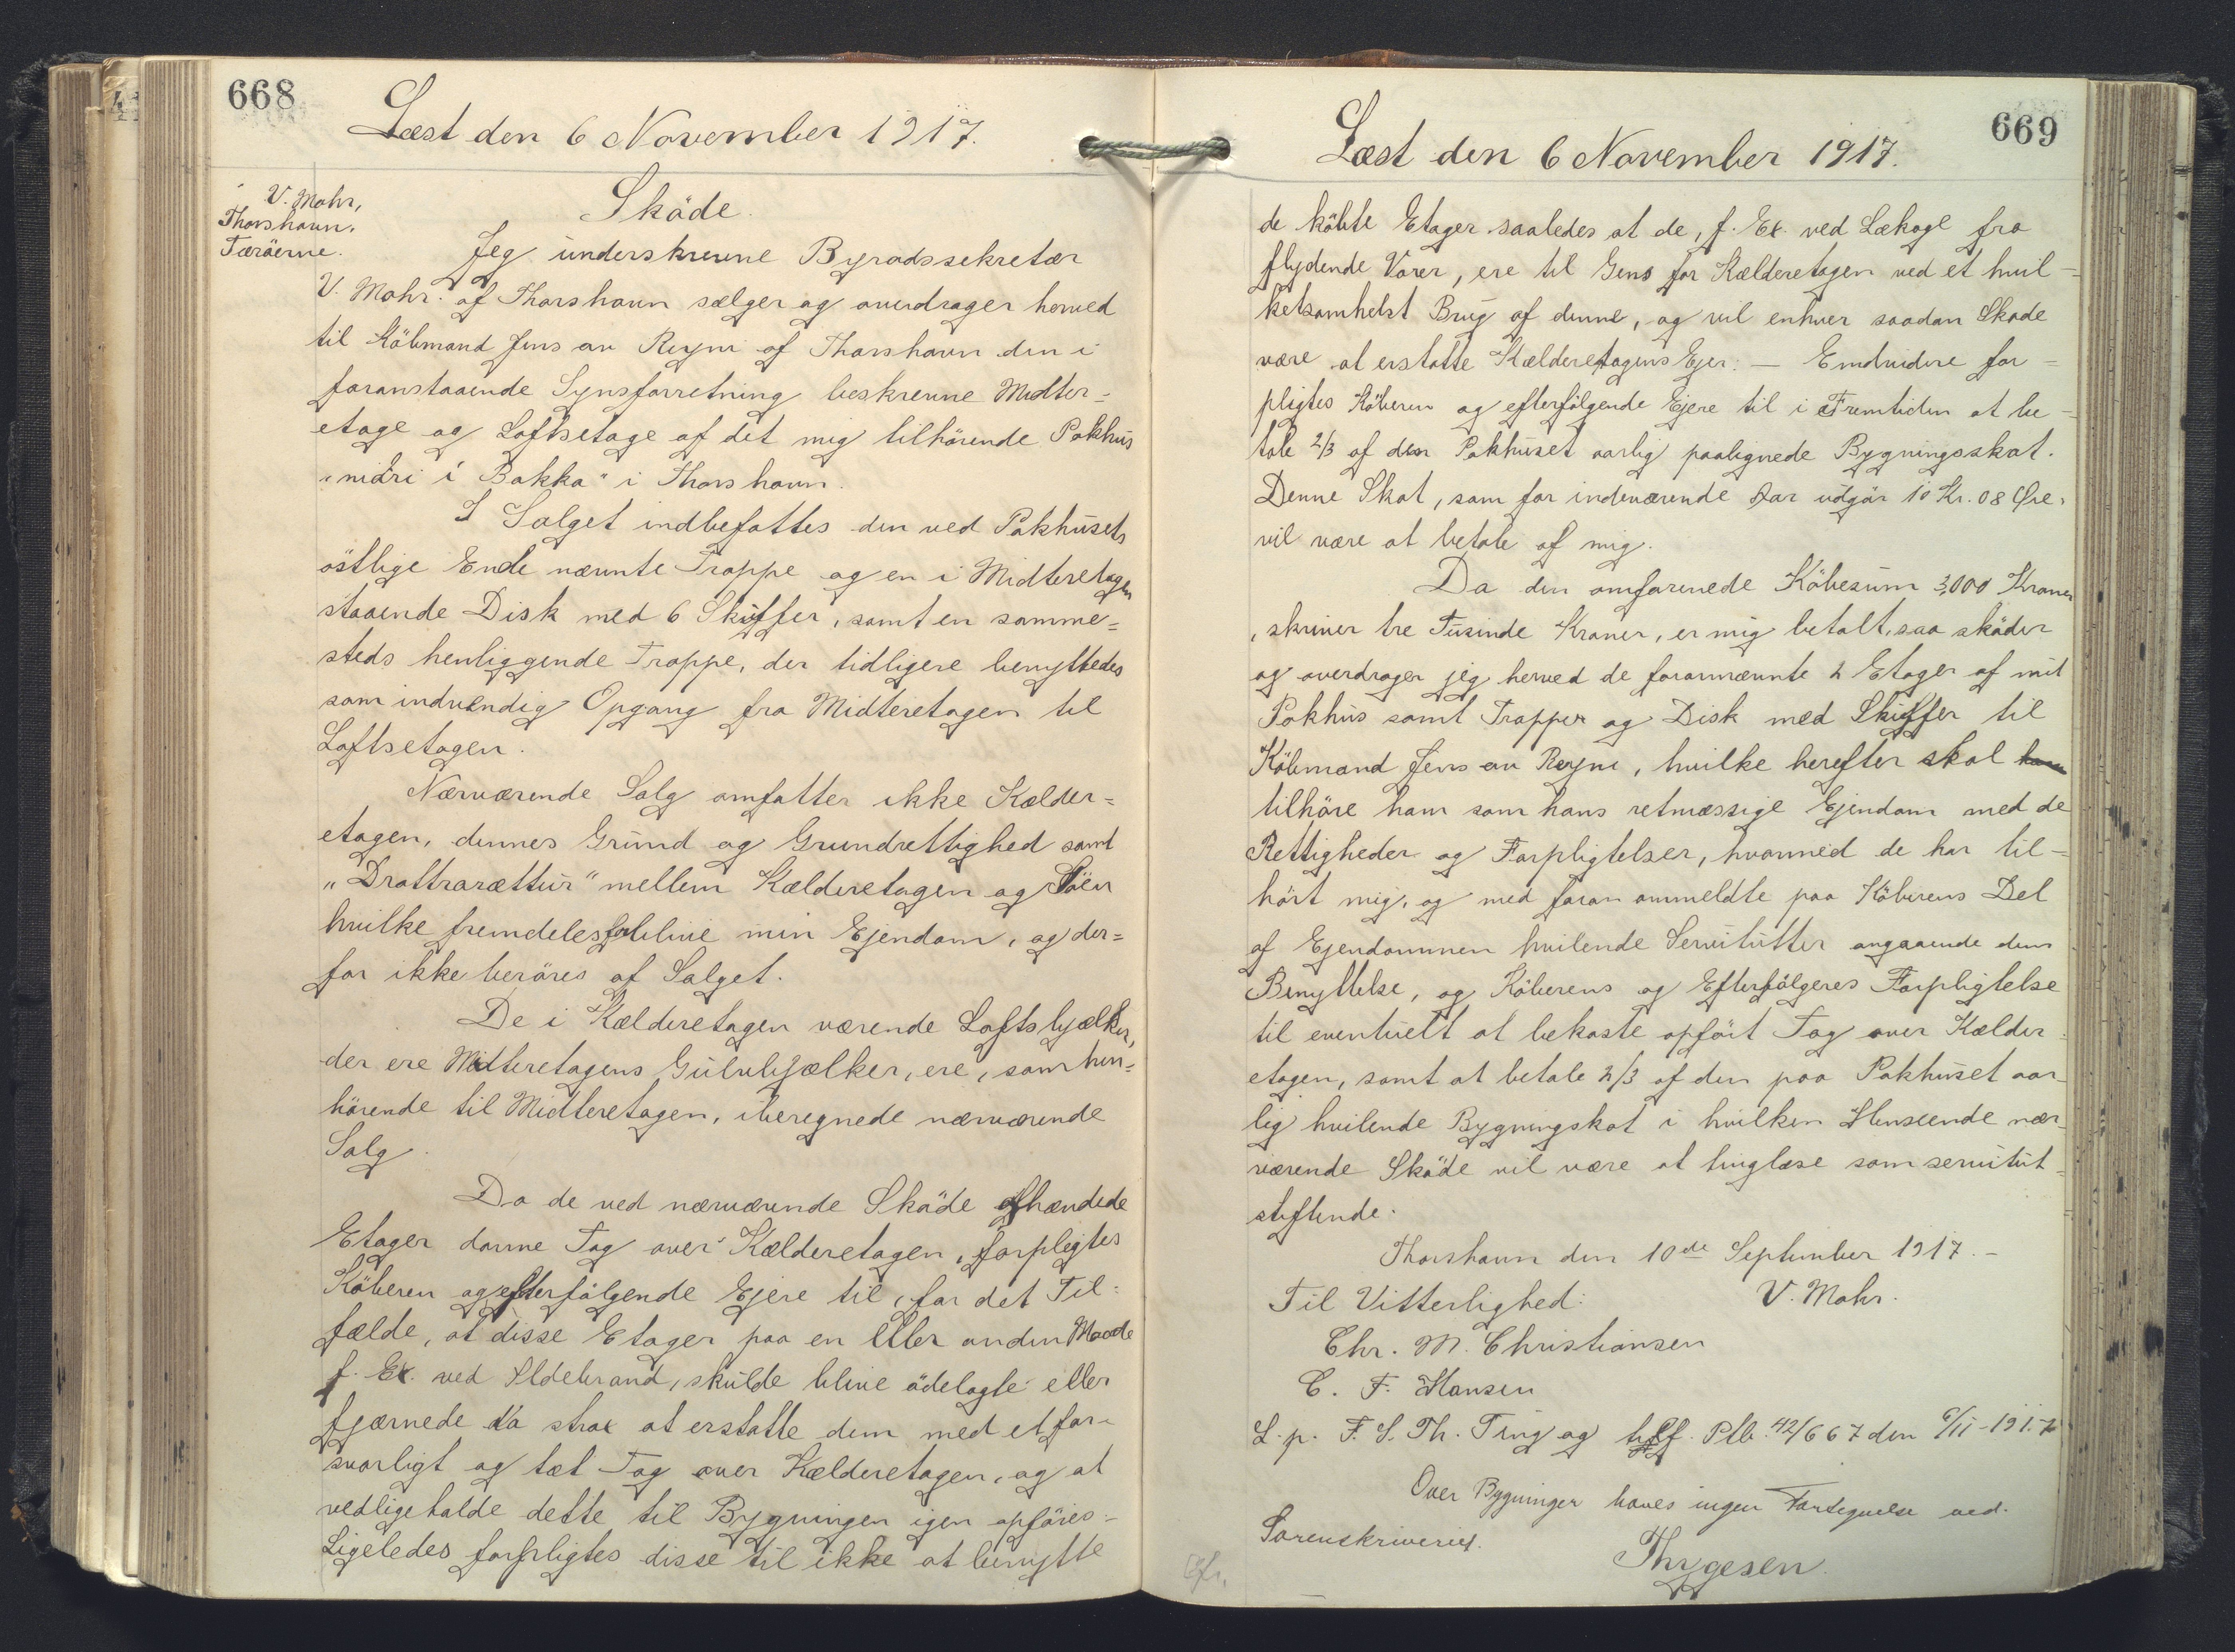 668
Læst den 6 November 1917.
V. Mohr,
Thorshavn.
Færöerne.
Sköde.
Jeg underskrevne Byraadssekretær
V. Mohr af Thorshavn sælger og overdrager herved
til Köbmand Jens av Reyni af Thorshavn den i
foranstaaende Synsforretning beskrevne Midter=
etage og Loftsetage af det mig tilhörende Pakhus
"niðri í Bakka" i Thorshavn.
I Salget indbefattes den ved Pakhusets
östlige Ende nævnte Trappe og en i Midteretagen
staaende Disk med 6 Skuffer, samt en samme=
steds henliggende Trappe, der tidligere benyttedes
som indvendig Opgang fra Midteretagen til
Loftsetagen.
Nærværende Salg omfatter ikke Kælder=
etagen, dennes Grund og Grundrettighed samt
"Drattrarættur" mellem Kælderetagen og Söen
hvilke fremdeles forblive min Ejendom, og der=
for ikke beröres af Salget.
De i Kælderetagen værende Loftsbjælker,
der ere Midteretagens Gulvbjælker, ere, som hen=
hörende til Midteretagen, iberegnede nærværende
Salg.
Da de ved nærværende Sköde afhændede
Etager danne Tag over Kælderetagen, forpligtes
Köberen og efterfölgende Ejere til, for det Til=
fælde, at disse Etager paa en eller anden Maade
f. Ex. ved Ildebrand, skulde blive ödelagte eller
fjærnede da strax at erstatte dem med et for-
svarligt og tæt Tag over Kælderetagen, og at
vedligeholde dette til Bygningen igen opföres.-
Ligeledes forpligtes disse til ikke at benytte
669
Læst den 6 November 1917.
de köbte Etager saaledes at de, f. Ex. ved Lækage fra
flydende Varer, ere til Gens for Kælderetagen ved et hvil-
ketsomhelst Brug af denne, og vil enhver saadan Skade
være at erstatte Kælderetagens Ejer. — Endvidere for=
pligtes Köberen og efterfölgende Ejere til i Fremtiden at be-
tale 2/3 af den Pakhuset aarlig paalignede Bygningsskat.
Denne Skat, som for indeværende Aar udgör 10 Kr. 08 Øre,
vil være at betale af mig.
Da den omforenede Köbesum 3,000 Kroner
, skriver tre Tusinde Kroner, er mig betalt, saa sköder
og overdrager jeg herved de forannævnte 2 Etager af mit
Pakhus samt Trapper og Disk med Skuffer til
Köbmand Jens av Reyni, hvilke herefter skal
tilhöre ham som hans retmæssige Ejendom med de
Rettigheder og Forpligtelser, hvormed de har til-
hört mig, og med foran ommeldte paa Köberens Del
af Ejendommen hvilende Servitutter angaaende dens
Benyttelse, og Köberens og Efterfölgeres Forpligtelse
til eventuelt at bekoste opfört Tag over Kælder-
etagen, samt at betale 2/3 af den paa Pakhuset aar-
lig hvilende Bygningskat i hvilken Henseende nær-
værende Sköde vil være at tinglæse som servitut-
stiftende.
Thorshavn den 10de September 1917.-
Til Vitterlighed: V. Mohr.
Chr. M. Christiansen
C. F. Hansen
L. p. F. S. Th. Ting og Plb. 42/667 den 6/11-1917
Over Bygninger haves ingen Fortegnelse ved
Sorenskriveriet.
Thygesen.